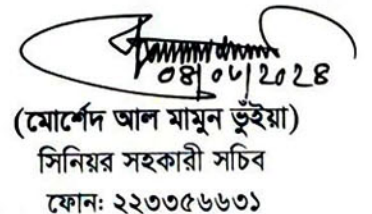 08/04/2024
(মোর্শেদ আল মামুন ভুঁইয়া)
সিনিয়র সহকারী সচিব
ফোন: ২২৩৩৫৬৬৩১